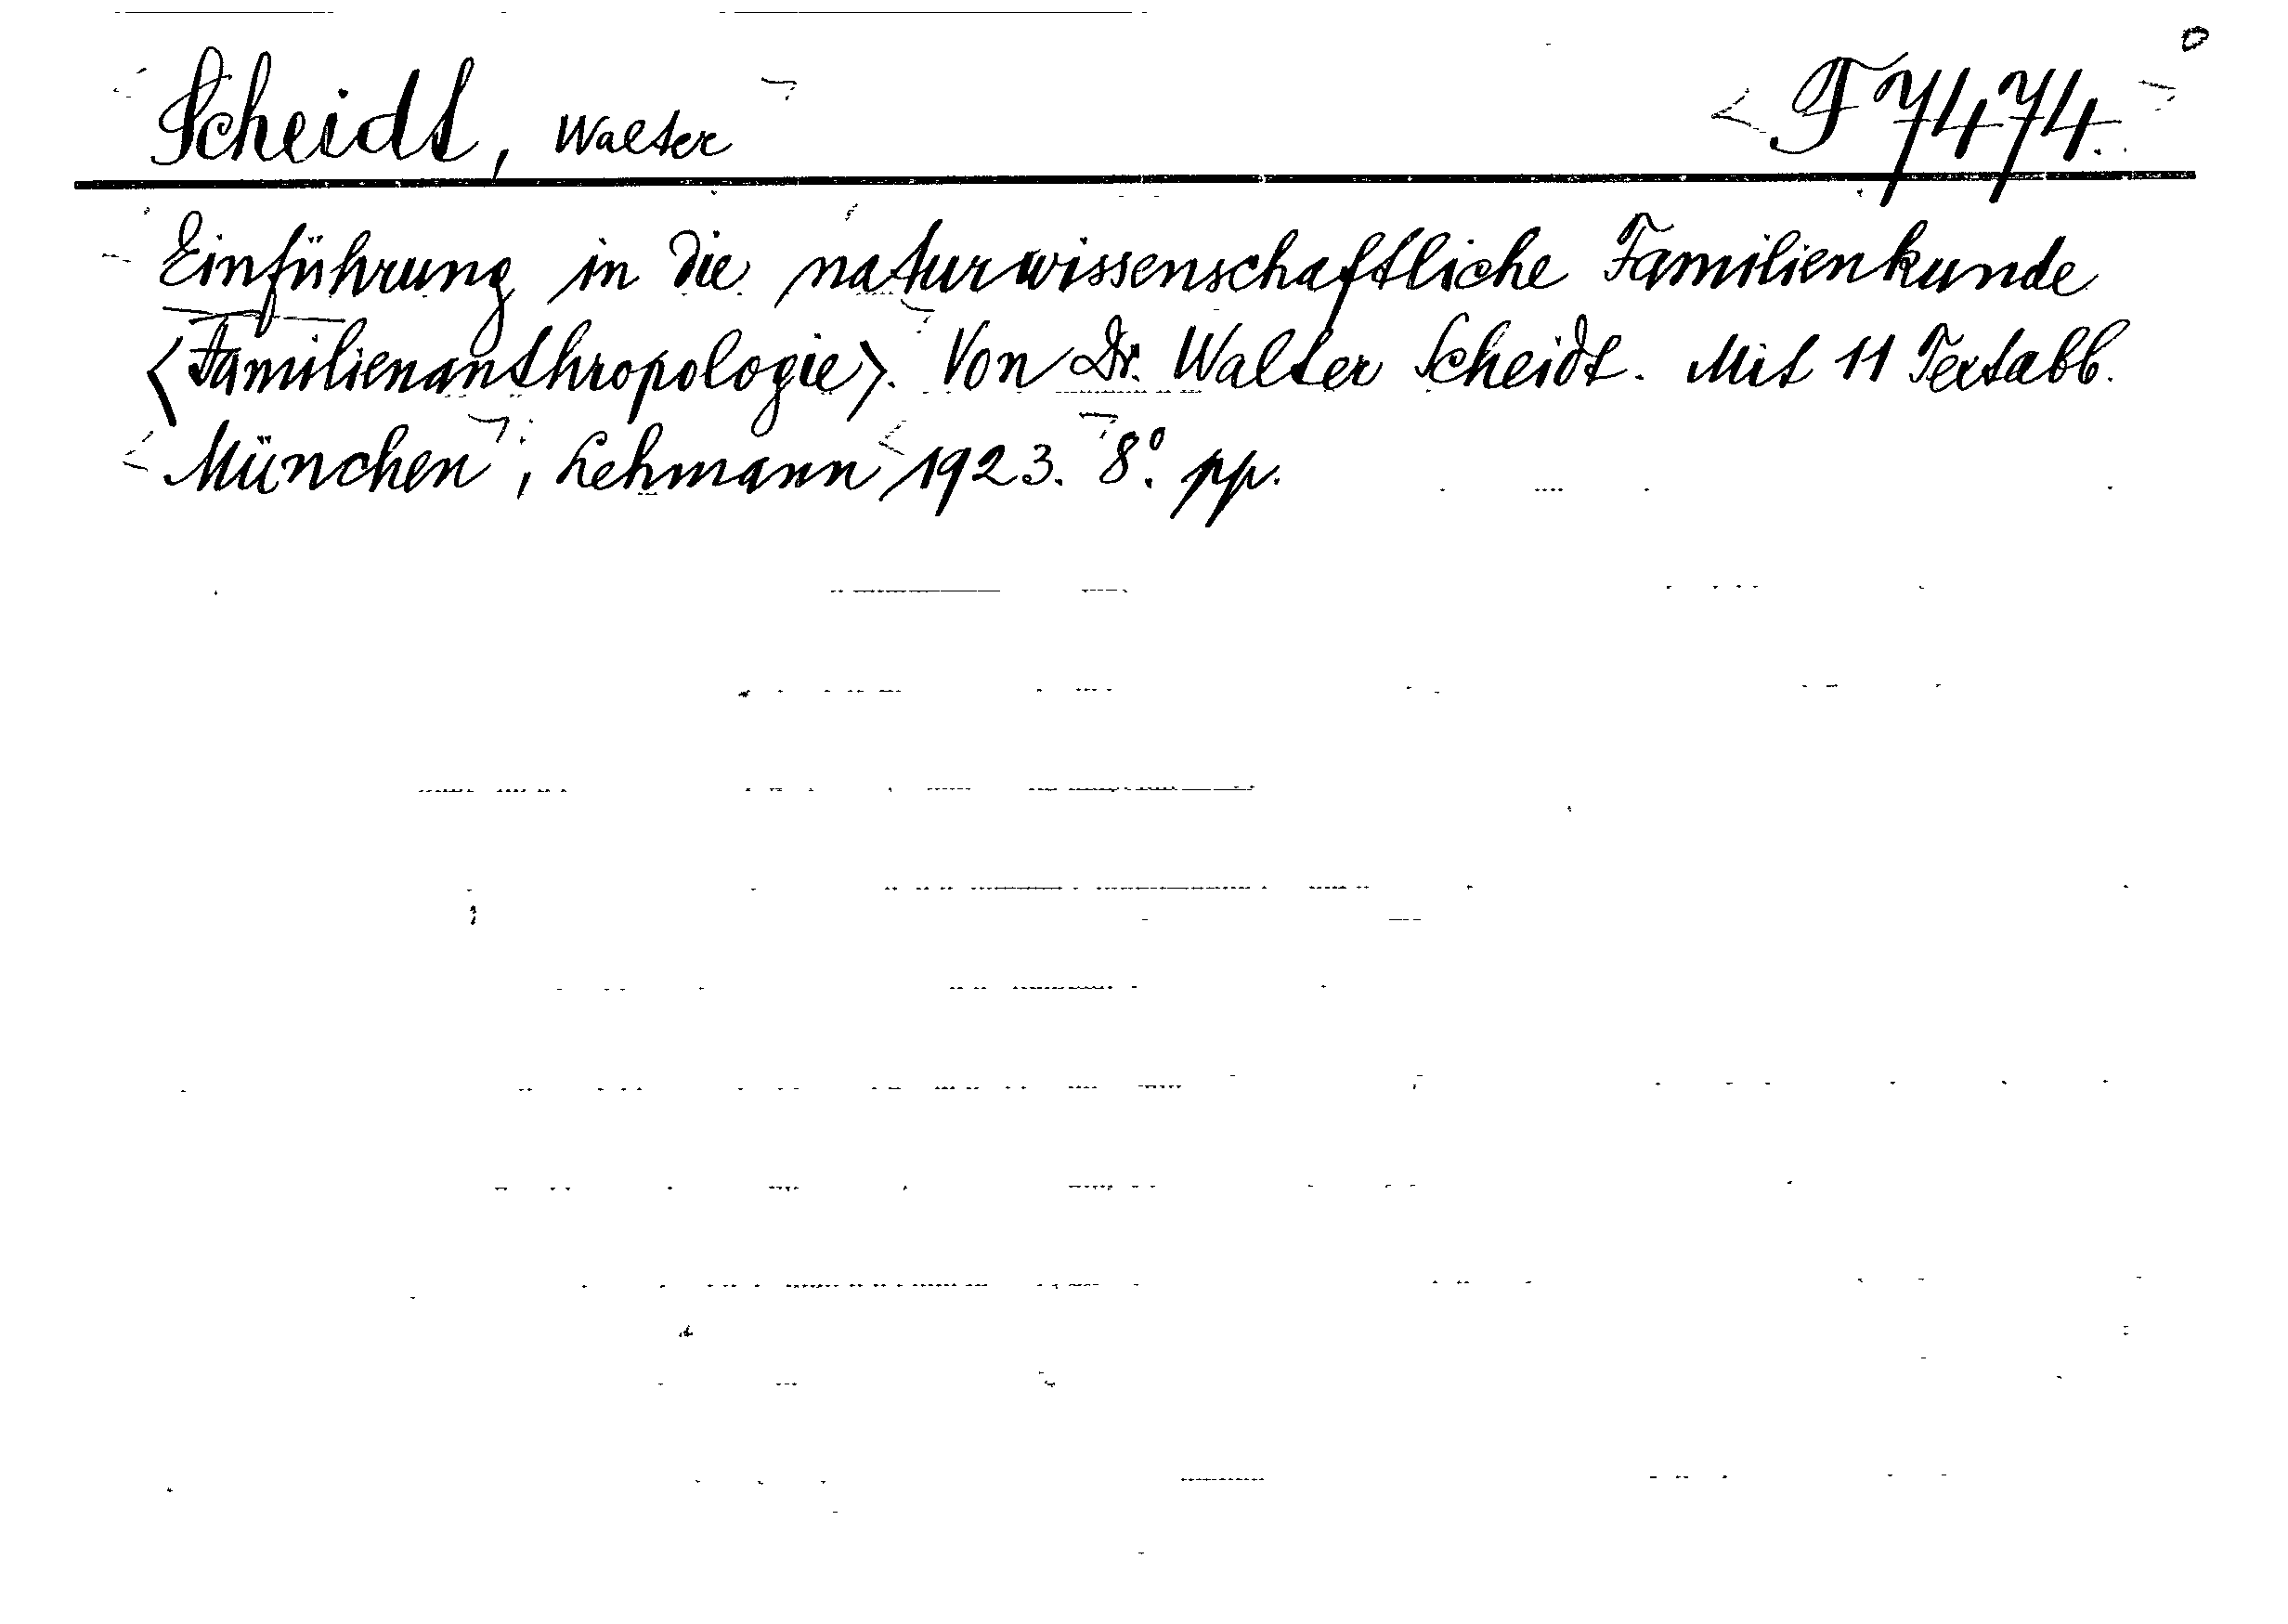 Scheidt, Walter F 7474.
Einführung in die naturwissenschaftliche Familienkunde
<Familienanthropologie>. Von Dr. Walter Scheidt. Mit 11 Textabb.
München, Lehmann 1923. 8°. pp.